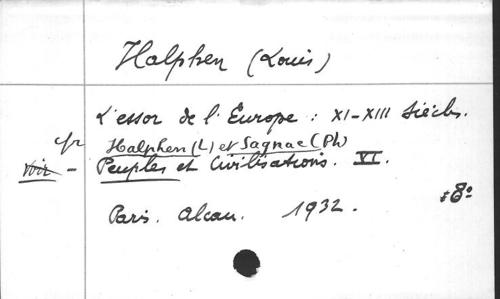 Halphen (Louis)
L'essor de l'Europe : XI-XIII siècles.
cfr Halphen (L) et Sagnac (Ph)
voir - Peuples et Civilisations. VI.
Paris. Alcan. 1932. 8º